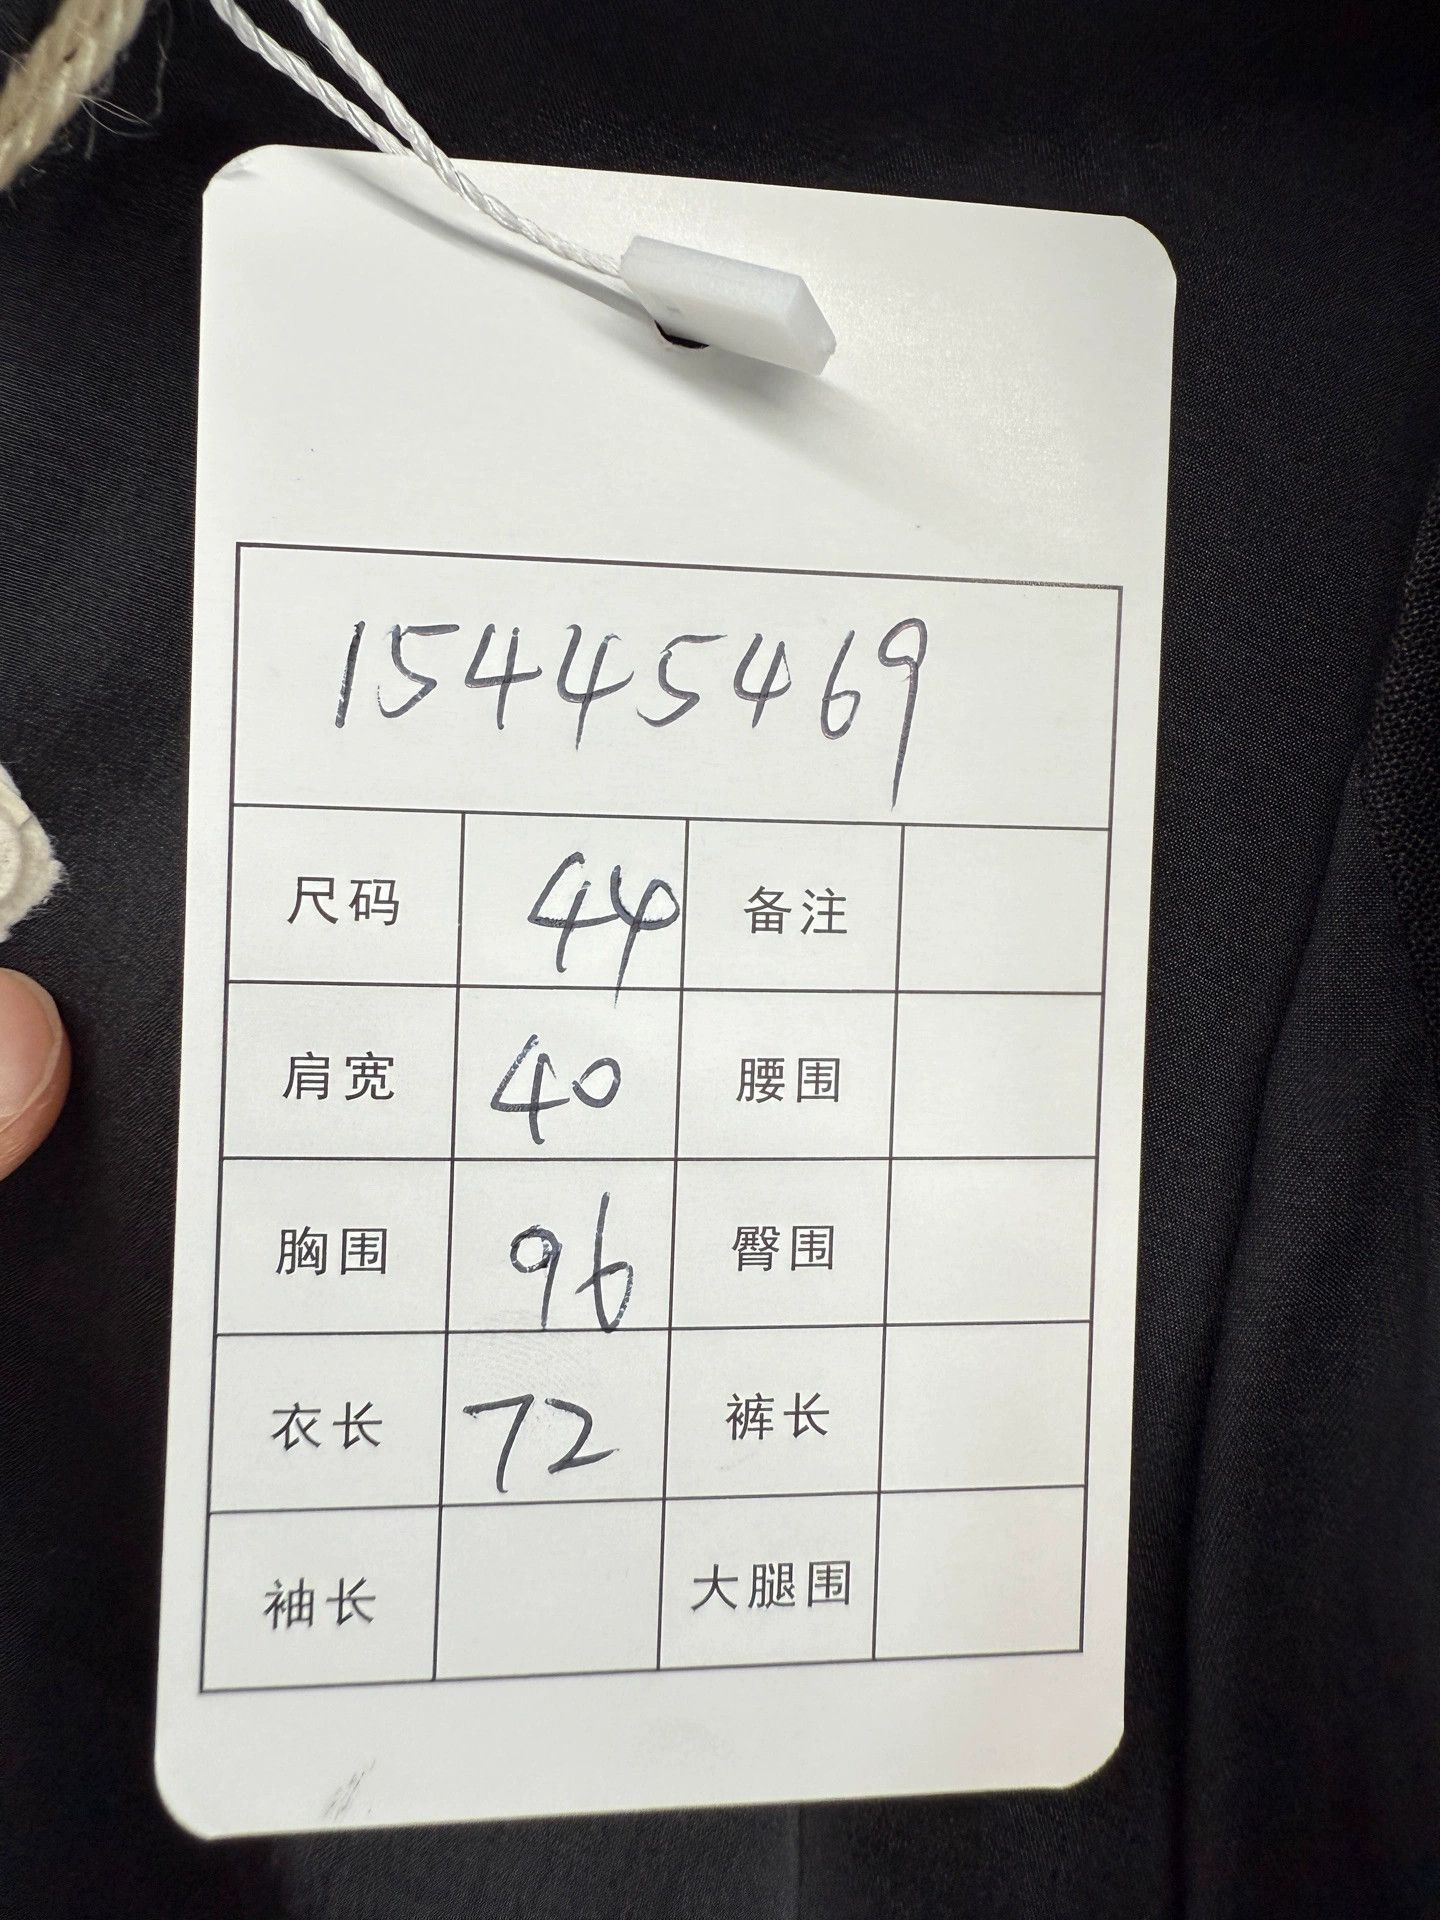 15445469
尺码 44 备注
肩宽 40 腰围
胸围 96 臀围
衣长 72 裤长
袖长 大腿围